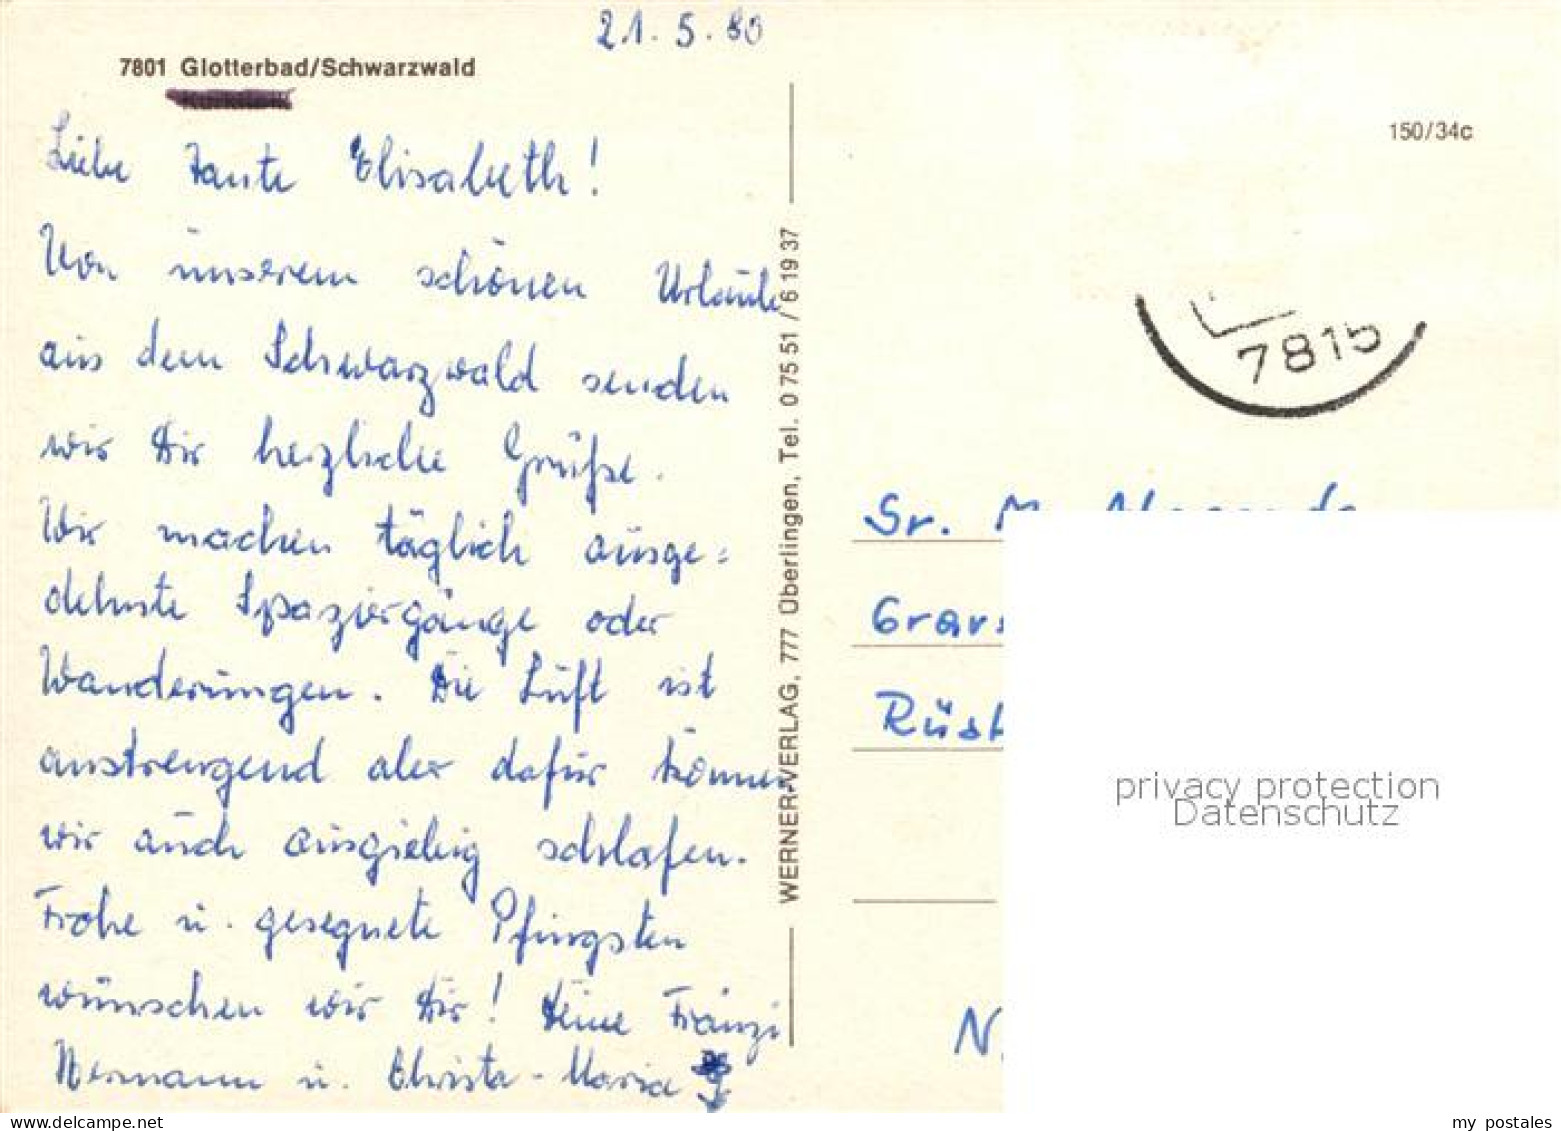 21.5.80
7801 Glotterbad/Schwarzwald
Liebe Tante Elisabeth!
Von unserem schönen Urlaub
aus dem Schwarzwald senden
wir Dir herzliche Grüße.
Wir machen täglich ausge=
dehnte Spaziergänge oder
Wanderungen. Die Luft ist
anstrengend aber dafür können
wir auch ausgiebig schlafen.
Frohe u. gesegnete Pfingsten
wünschen wir Dir! Deine Franzi
Hermann u. Christa-Maria
WERNER-VERLAG, 777 Überlingen, Tel. 0 75 51 / 6 19 37
150/34c
7815
Sr. M.
privacy protection
Datenschutz
my postales